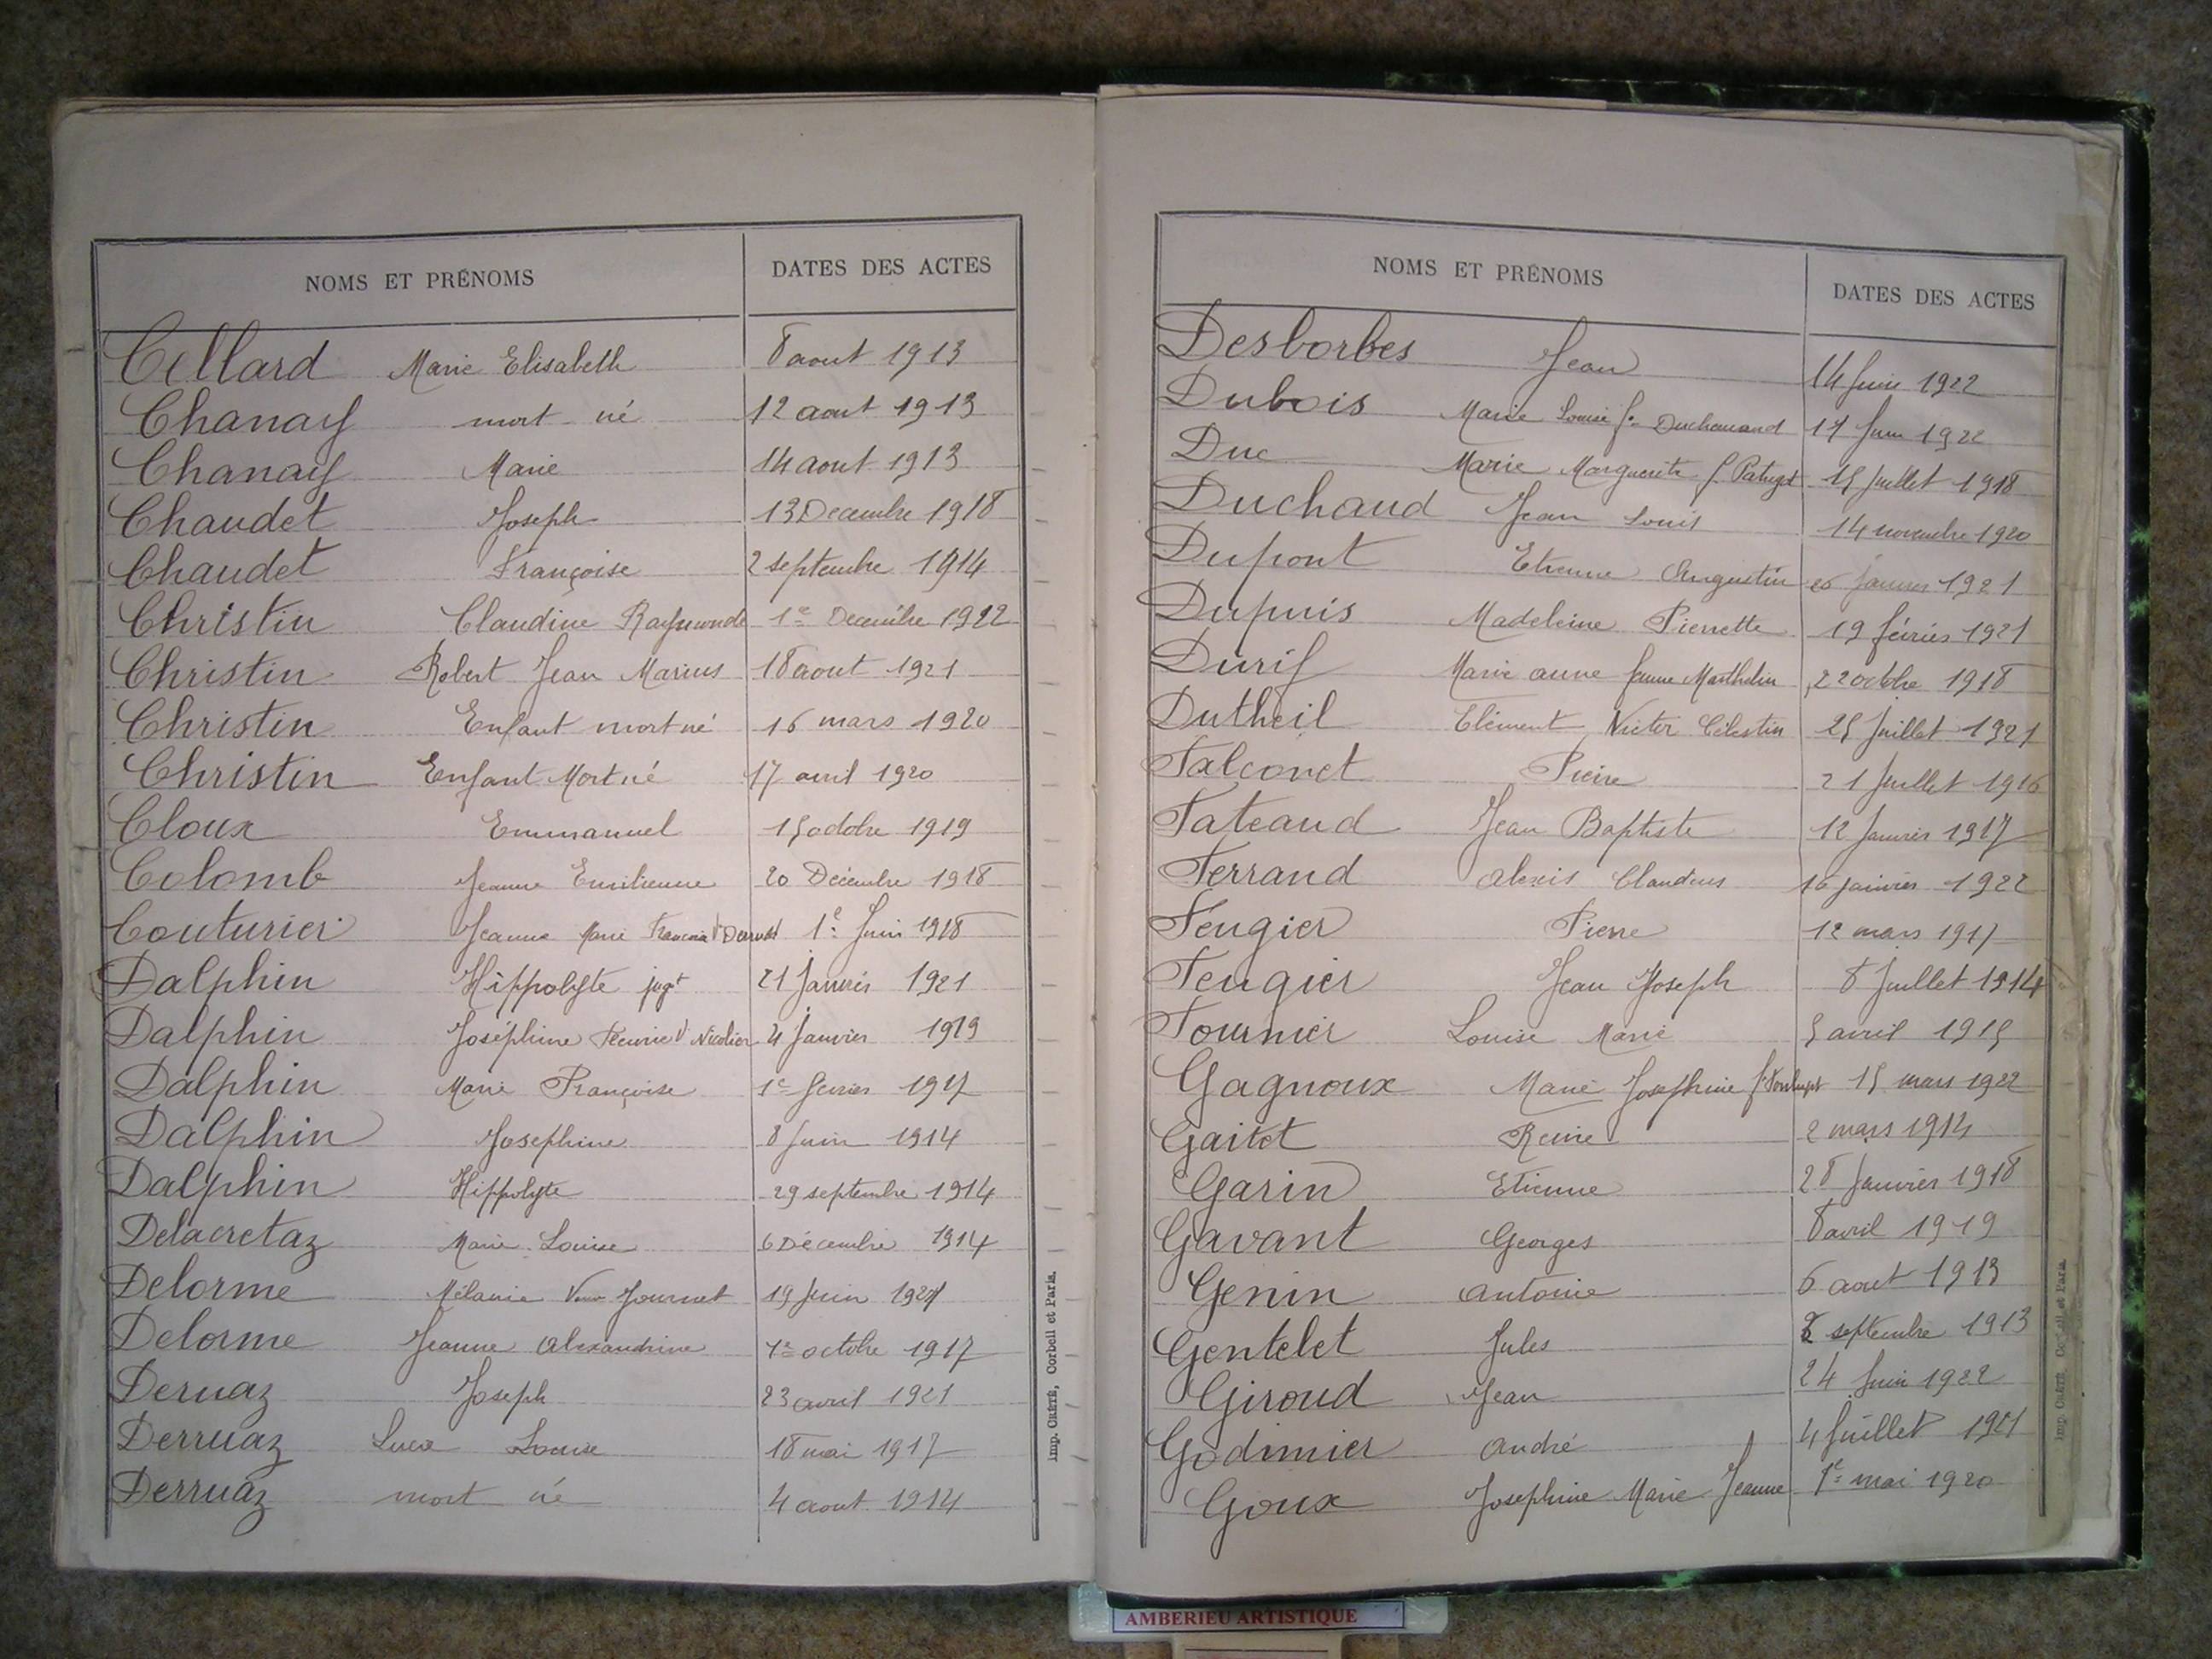 NOMS ET PRÉNOMS DATES DES ACTES
Cellard Marie Elisabeth 8 aout 1913
Chanay mort né 12 aout 1913
Chanay Marie 14 aout 1913
Chaudet Joseph 13 Decembre 1918
Chaudet Françoise 2 septembre 1914
Christin Claudine Raymonde 1e Decembre 1922
Christin Robert Jean Marius 18 aout 1921
Christin Enfant mort né 16 mars 1920
Christin Enfant Mort né 17 avril 1920
Cloux Emmanuel 15 octobre 1919
Colomb Jeanne Emilienne 20 Décembre 1918
Couturier Jeanne Marie 1e Juin 1918
Dalphin Hippolyte 21 Janvier 1921
Dalphin Joséphine Fleurie Vve Nicolier 4 Janvier 1919
Dalphin Marie Françoise 1e fevrier 1917
Dalphin Josephine 8 Juin 1914
Dalphin Hippolyte 29 septembre 1914
Delacretaz Marie Louise 6 Décembre 1914
Delorme Mélanie Veuve Journet 19 Juin 1921
Delorme Jeanne Alexandrine 1e octobre 1917
Deruaz Joseph 23 avril 1921
Derruaz Louise 18 mai 1917
Derruaz mort né 4 aout 1914
Imp. CRÉTÉ, Corbeil et Paris.
NOMS ET PRÉNOMS DATES DES ACTES
Desborbes Jean 14 Juin 1922
Dubois Marie Louise fe 17 Juin 1922
Duc Marie Marguerite f. 15 Juillet 1918
Duchaud Jean Louis 14 novembre 1920
Dupont Etienne Augustin 26 Janvier 1921
Dupuis Madeleine Pierrette 19 février 1921
Durif Marie anne femme Marthelin 22 octobre 1918
Dutheil Clément Victor Célestin 25 Juillet 1921
Falconet Pierre 21 Juillet 1916
Fateaud Jean Baptiste 12 Janvier 1917
Ferrand Alexis Claudius 16 janvier 1922
Feugier Pierre 12 mars 1917
Feugier Jean Joseph 8 Juillet 1914
Fournier Louise Marie 5 avril 1915
Gagnoux Marie Josephine 15 mars 1922
Gaitet Reine 2 mars 1914
Garin Etienne 28 Janvier 1918
Gavant Georges 8 avril 1919
Genin Antoine 6 aout 1913
Gentelet Jules septembre 1913
Giroud Jean 24 Juin 1922
Godimier André 4 Juillet 1921
Goux Josephine Marie Jeanne 1e mai 1920
Imp. CRÉTÉ, Corbeil et Paris.
AMBERIEU ARTISTIQUE